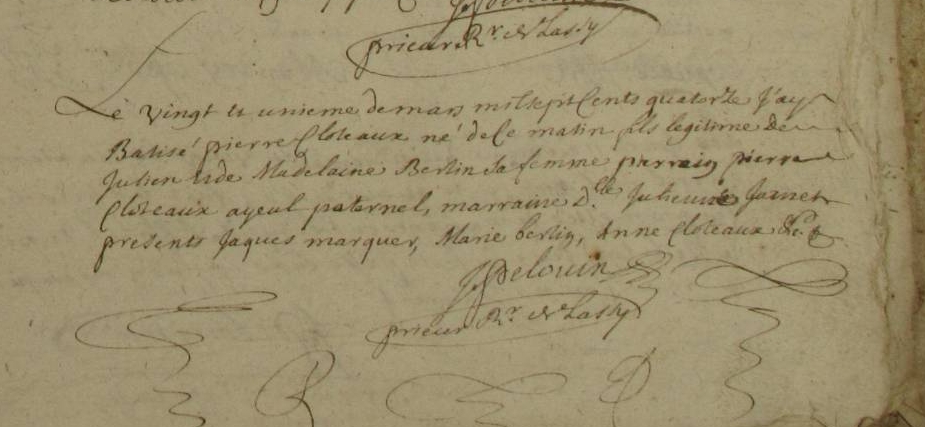 prieur Rr de Lassy
Le vingt et unieme de mars mil sept Cents quatorze J'ay
Batisé pierre Cloteaux né de Ce matin fils legitime de
Julien et de Madelaine Bertin sa femme parrain pierre
Cloteaux ayeul paternel, marraine D.lle Julienne Jarnet
presents Jaques marquer, Marie bertin, Anne Cloteaux &c.
Delouin
prieur Rr de Lassy